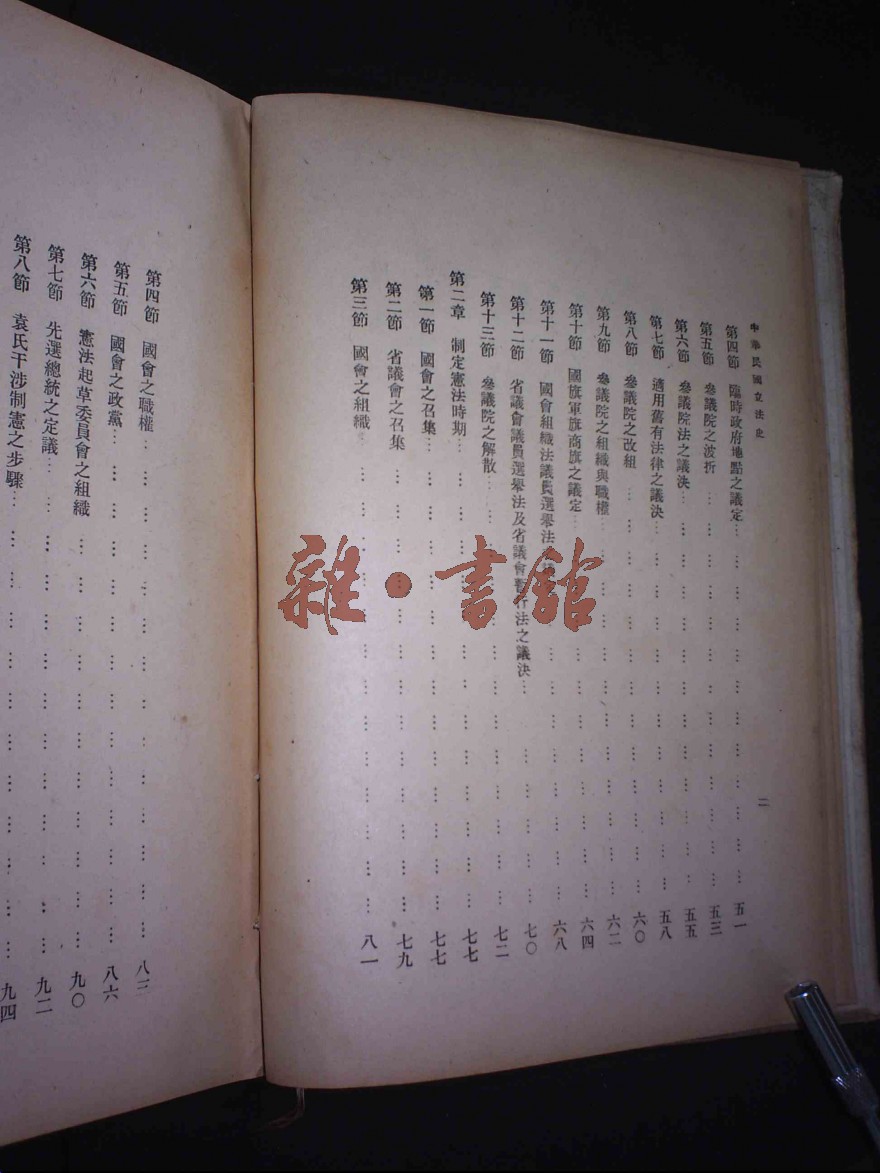 中華民國立法史
二
第四節 臨時政府地點之議定……五一
第五節 參議院之波折……五三
第六節 參議院法之議決……五五
第七節 適用舊有法律之議決……五八
第八節 參議院之改組……六〇
第九節 參議院之組織與職權……六二
第十節 國旗軍旗商旗之議定……六四
第十一節 國會組織法議員選舉法……六八
第十二節 省議會議員選舉法及省議會暫行法之議決……七〇
第十三節 參議院之解散……七二
第二章 制定憲法時期……七七
第一節 國會之召集……七七
第二節 省議會之召集……七九
第三節 國會之組織……八一
第四節 國會之職權……八三
第五節 國會之政黨……八六
第六節 憲法起草委員會之組織……九〇
第七節 先選總統之定議……九二
第八節 袁氏干涉制憲之步驟……九四
雜·書館